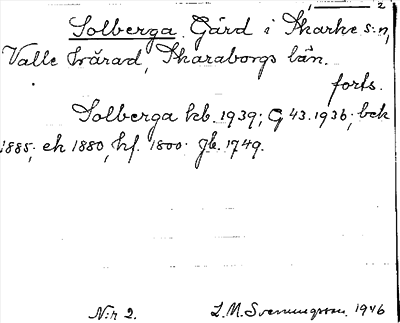 1 2
Solberga Gård i Skarke s:n,
Valle härad, Skaraborgs län.
forts.
Solberga kb. 1939; G 43. 1936; bek
1885; ek 1880, hf. 1800. Jb. 1749.
N:r 2. L. M. Svenungsson. 1946